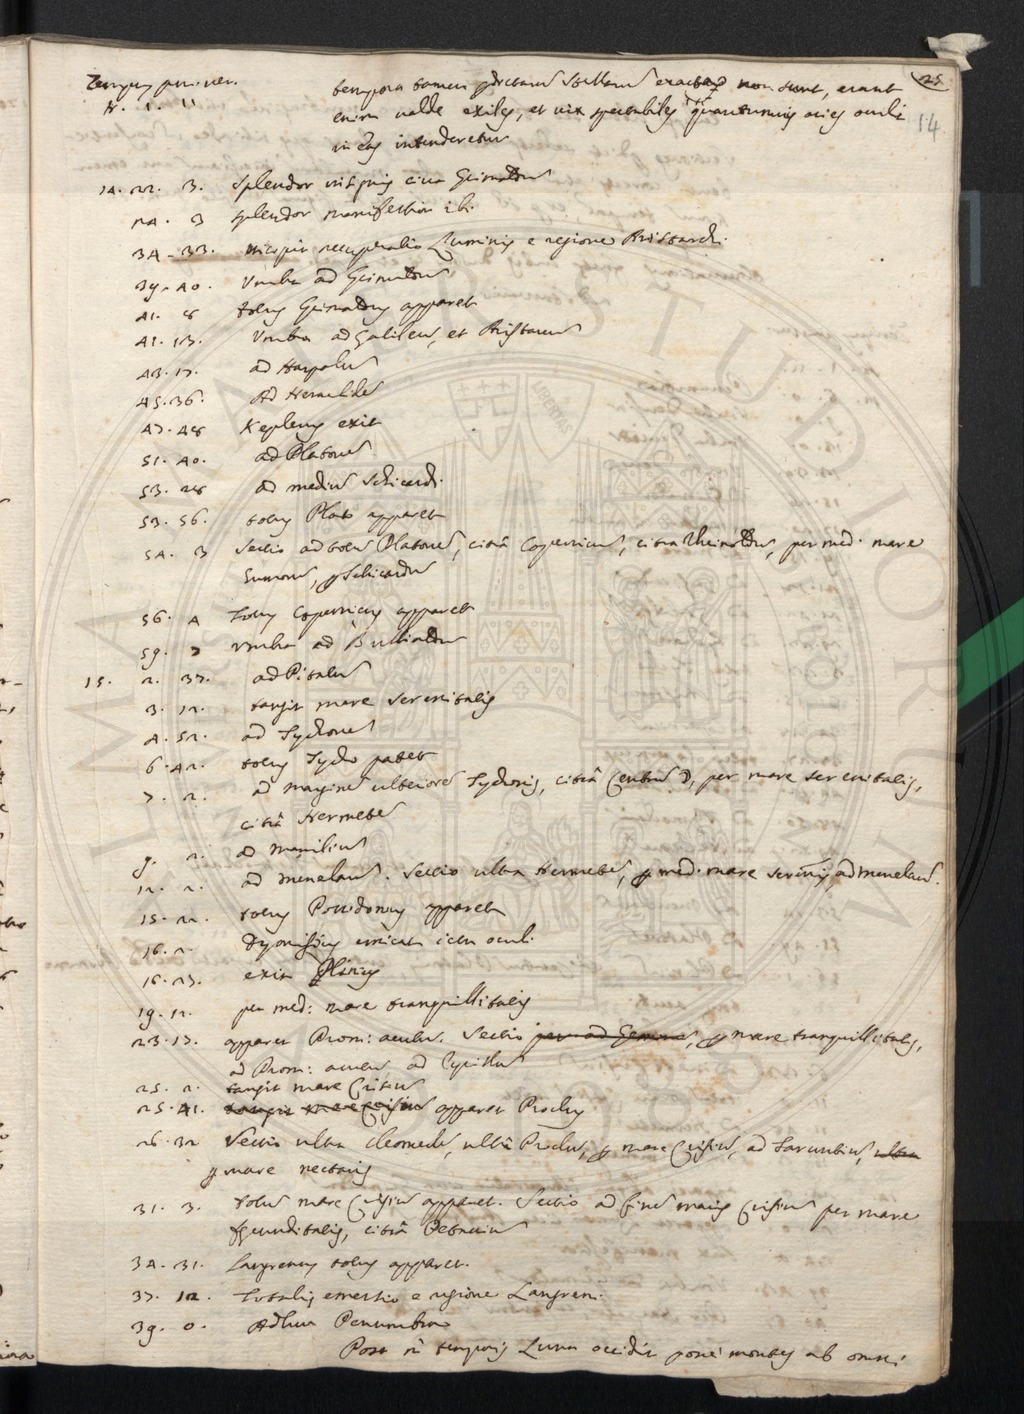 25
14
Tempus pom. ver.
H. I. II
tempora tamen praedictarum Stellarum exacta non sunt, erant
enim valde exiles, et vix spectabiles quantumvis acies oculi
in eas intenderetur
14. 22. 3. Splendor insignis circa Grimaldum
24. 3 splendor manifestior ibi
34. 33. incipit recuperatio Luminis e regione Aristarchi.
39. 40. Umbra ad Grimaldum
41. 8 totus Grimaldus apparet
41. 13. Umbra ad Galileum, et Aristarcum
43. 17. ad Harpalum
45. 36. Ad Heraclidem
47. 48 Keplerus exit
51. 40. ad Platonem
53. 28 ad medium Schicardi.
53. 56. totus Plato apparet
54. 3 Sectio ad totum Platonem, citrà Copernicum, citra Rheinoldum, per med. mare
Humorum, Schicardum
56. 4 Totus Copernicus apparet
59. 7 umbra ad Bullialdum
15. 2. 37. ad Pitatum
3. 12. tangit mare Serenitatis
4. 52. ad Tychonem
6. 42. totus Tycho patet
7. 2. ad marginem ulteriorem Tychonis, citrà Centrum, per mare serenitatis,
citrà Hermetem
9. 2. ad Manilium
12. 2. ad Menelaum. Sectio ultra Hermetem, med. mare seren., ad Menelaum.
15. 22. totus Possidonius apparet
16. 2. Dyonisius emicat ictu oculi
16. 27. exit Plinius
19. 12. per med: mare tranquillitatis
23. 17. apparet Prom: acutum. Sectio mare tranquillitatis,
ad Prom: acutum ad Cyrillum
25. 2. tangit mare Crisium
25. 41. tangit mare Crisium apparet Proclus
26. 32 Sectio ultra Cleomedem, ultrà Proclum, mare Crisium, ad Taruntium, ultra
mare nectaris
31. 3. totum mare Crisium apparet. Sectio ad finem maris Crisium per mare
foecunditatis, citrà Petavium
34. 31. Langrenus totus apparet.
37. 12. Totalis emersio e regione Langreni
39. 0. Adhuc Penumbra
Luna occidit ponè montes